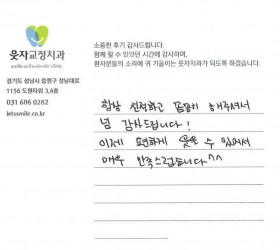 웃자교정치과
경기도 성남시 중원구 성남대로
1156 도원타워 3,4층
031 606 0282
letssmile.co.kr
소중한 후기 감사드립니다.
함께 할 수 있었던 시간에 감사하며,
환자분들의 소리에 귀 기울이는 웃자치과가 되도록 하겠습니다.
항상 친절하고 꼼꼼히 해주셔서
넘 감사드립니다!
이제 편하게 웃을 수 있어서
매우 만족스럽습니다^^